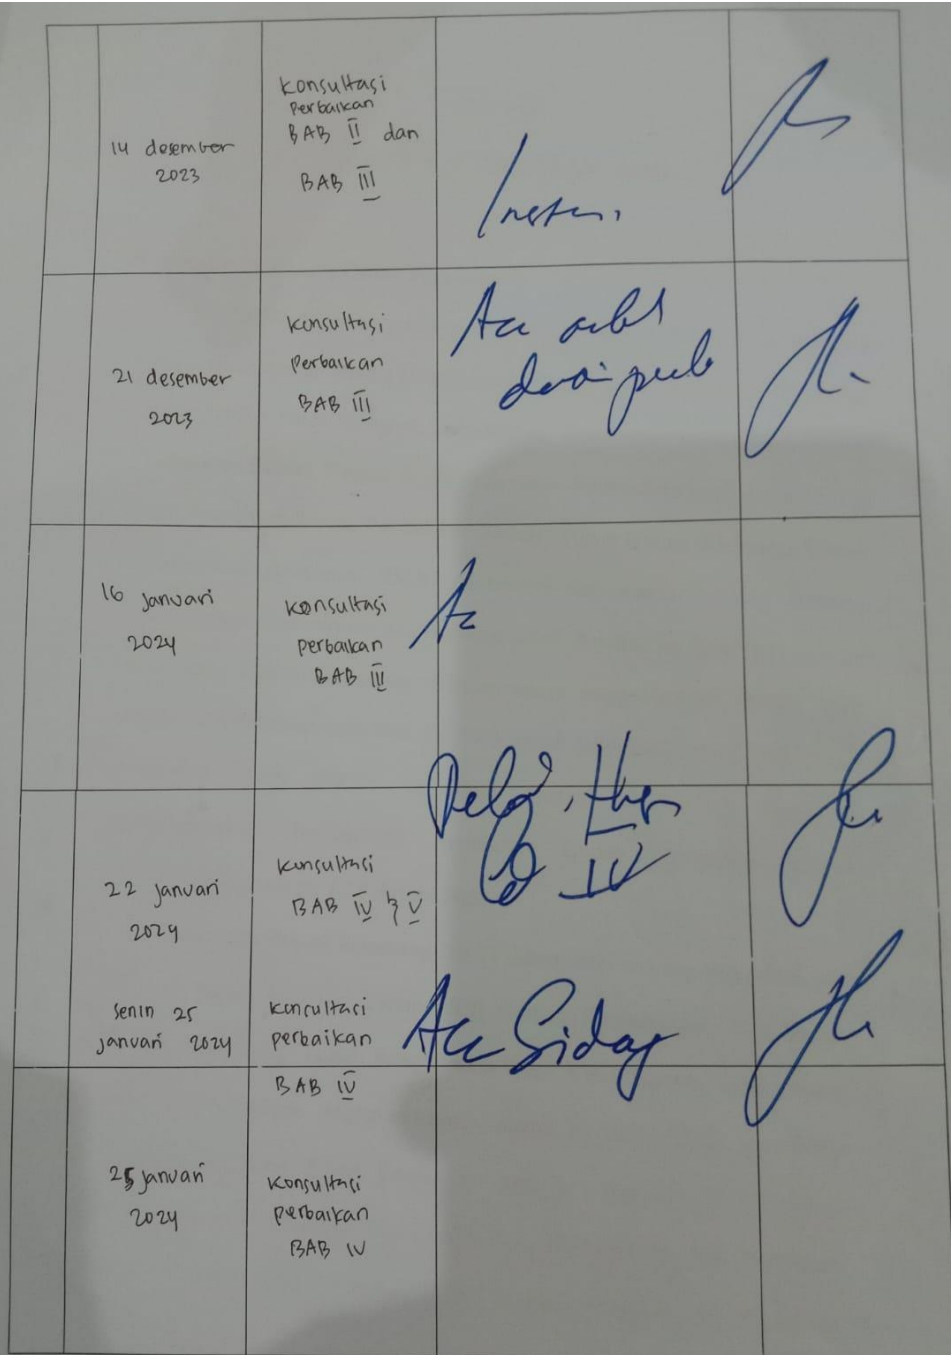 14 desember
2023
Konsultasi
Perbaikan
BAB II dan
BAB III
21 desember
2023
Konsultasi
Perbaikan
BAB III
Acc
16 Januari
2024
Konsultasi
perbaikan
BAB III
Acc
22 Januari
2024
Konsultasi
BAB IV & V
IV
Senin 25
Januari 2024
Konsultasi
perbaikan
BAB IV
Acc Sidang
25 Januari
2024
Konsultasi
perbaikan
BAB IV